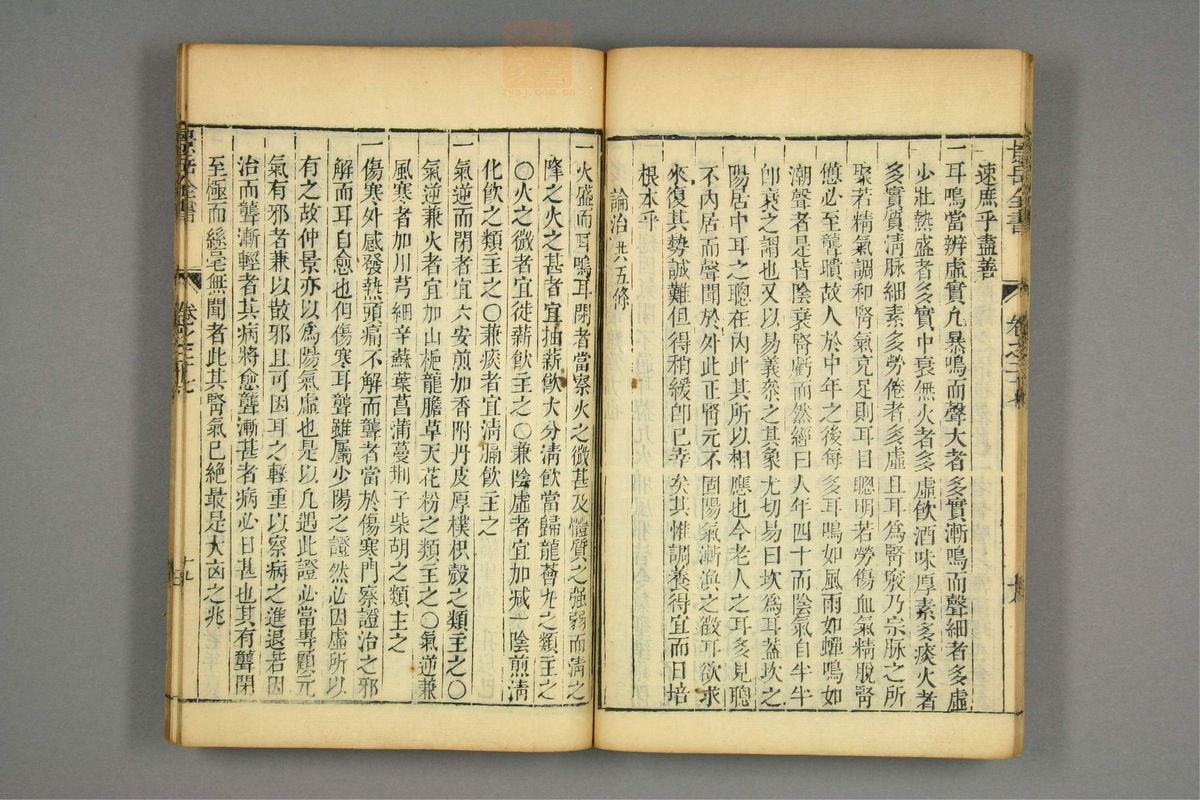 速庶乎盡善
一耳鳴當辨虛實凡暴鳴而聲大者多實漸鳴而聲細者多虛
少壯熱盛者多實中衰無火者多虛飲酒味厚素多痰火者
多實質清脉細素多勞倦者多虛且耳爲腎竅乃宗脉之所
聚若精氣調和腎氣充足則耳目聰明若勞傷血氣精脫腎
憊必至聾聵故人於中年之後每多耳鳴如風雨如蟬鳴如
潮聲者是皆陰衰腎虧而然經曰人年四十而陰氣自半半
卽衰之謂也又以易義叅之其象尤切易曰坎爲耳蓋坎之
陽居中耳之聰在內此其所以相應也今老人之耳多見聰
不內居而聲聞於外此正腎元不固陽氣漸渙之徵耳欲求
來復其勢誠難但得稍緩卽已幸矣其惟調養得宜而日培
根本乎
論治共五條
一火盛而耳鳴耳閉者當察火之微甚及體質之强弱而清之
降之火之甚者宜抽薪飲大分清飲當歸龍薈丸之類主之
○火之微者宜徙薪飲主之○兼陰虛者宜加減一陰煎清
化飲之類主之○兼痰者宜清膈飲主之
一氣逆而閉者宜六安煎加香附丹皮厚樸枳殼之類主之○
氣逆兼火者宜加山梔龍膽草天花粉之類主之○氣逆兼
風寒者加川芎細辛蘇葉菖蒲蔓荆子柴胡之類主之
一傷寒外感發熱頭痛不解而聾者當於傷寒門察證治之邪
解而耳自愈也但傷寒耳聾雖屬少陽之證然必因虛所以
有之故仲景亦以爲陽氣虛也是以凡遇此證必當專顧元
氣有邪者兼以散邪且可因耳之輕重以察病之進退若因
治而聾漸輕者其病將愈聾漸甚者病必日甚也其有聾閉
至極而絲毫無聞者此其腎氣已絕最是大凶之兆
景岳全書
卷之二十七